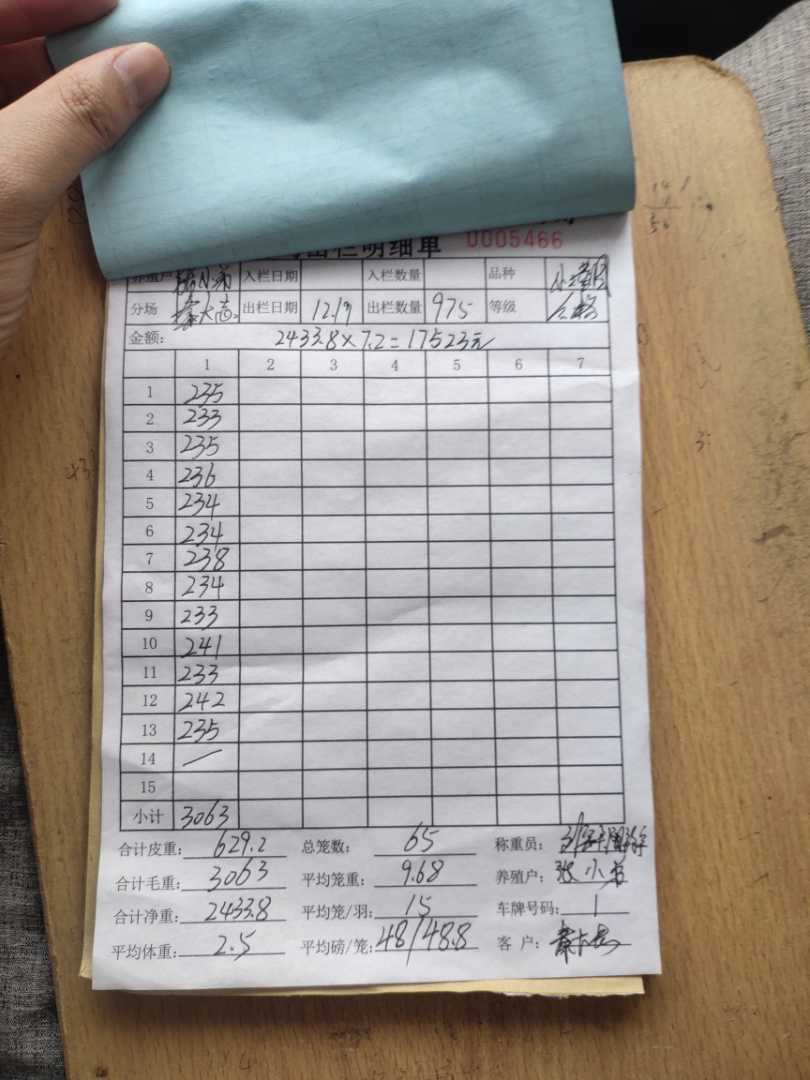 出栏明细单 0005466
养殖户 入栏日期 入栏数量 品种
分场 出栏日期 12.19 出栏数量 975 等级 合格
金额: 2433.8×7.2=17523元
1 2 3 4 5 6 7
1 235
2 233
3 235
4 236
5 234
6 234
7 238
8 234
9 233
10 241
11 233
12 242
13 235
14 /
15
小计 3063
合计皮重: 629.2 总笼数: 65 称重员:
合计毛重: 3063 平均笼重: 9.68 养殖户: 张小弟
合计净重: 2433.8 平均笼/羽: 15 车牌号码: 1
平均体重: 2.5 平均磅/笼: 48/48.8 客户: